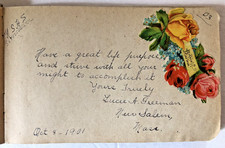 Have a great life purpose
and strive with all your
might to accomplish it
Yours Truly
Lucie A. Freeman
New Salem,
Mass.
Oct 8 - 1901